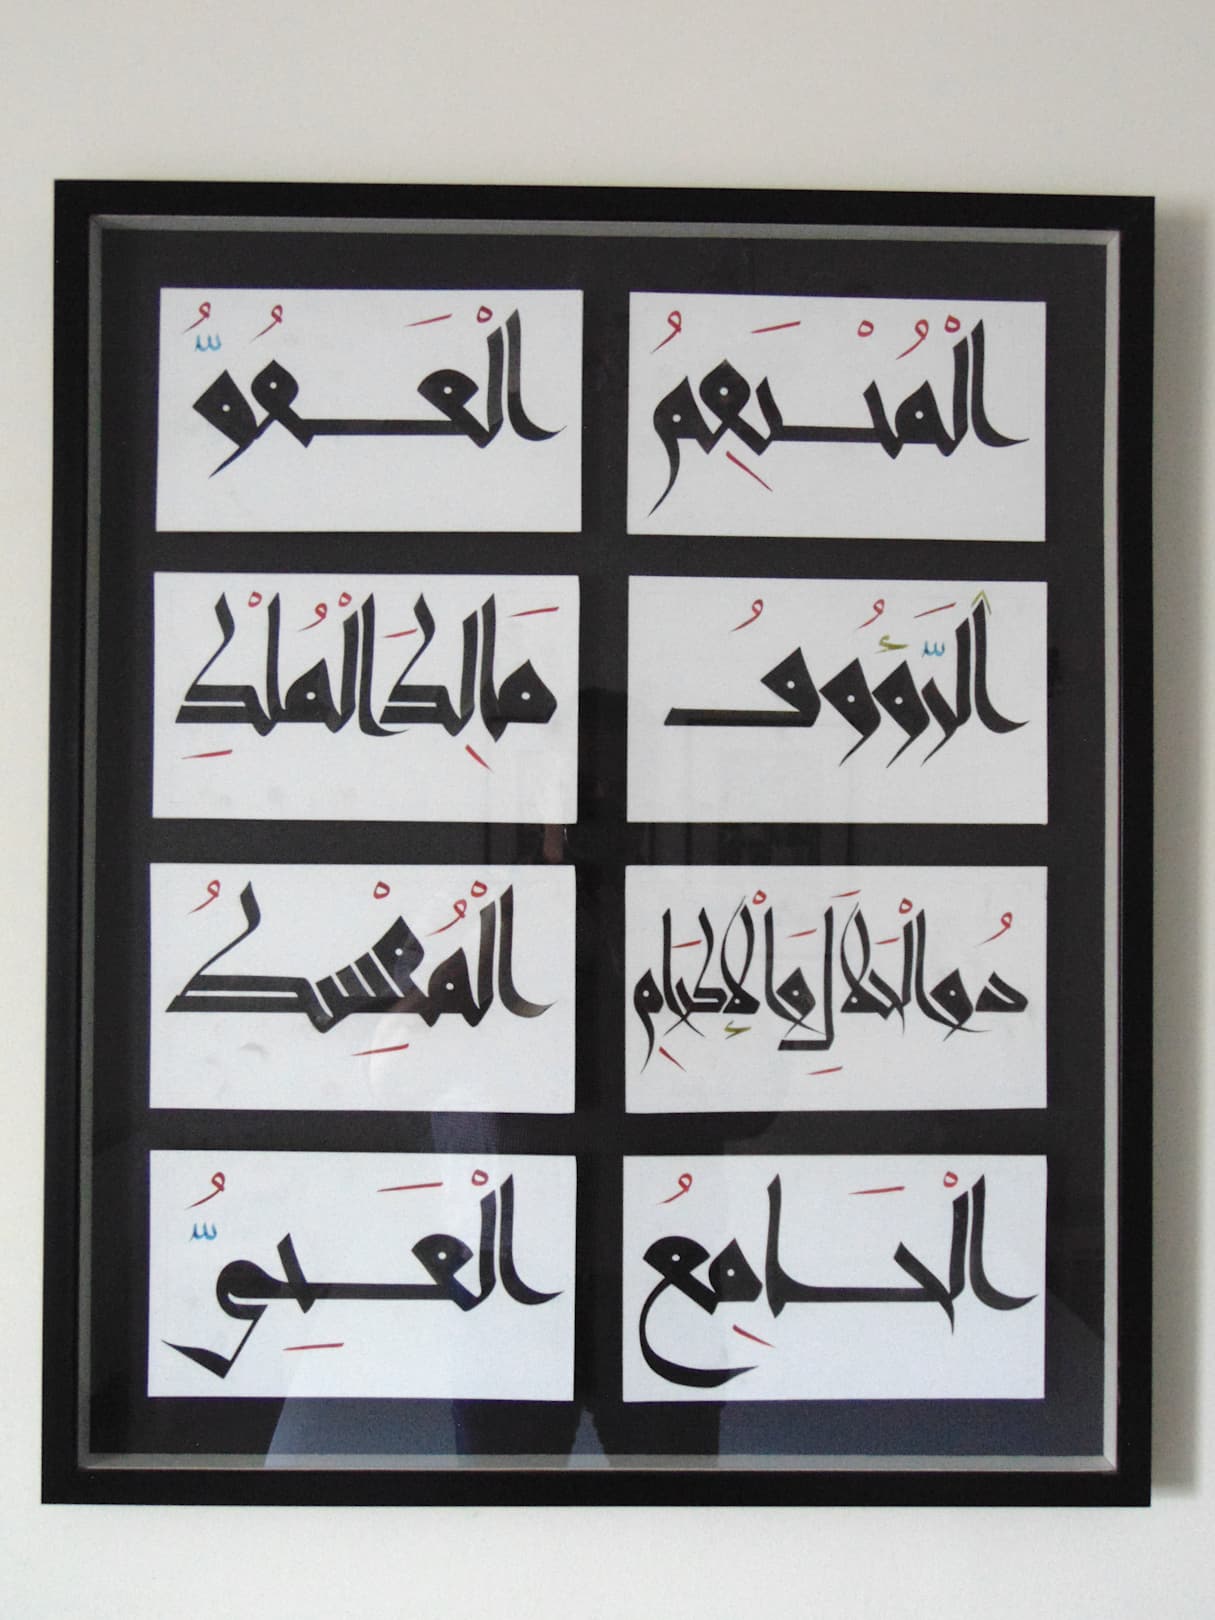 الْمُنْتَقِمُ
الْعَفُوُّ
الرَّؤُوفُ
مَالِكَ الْمُلْكِ
ذُو الْجَلَالِ وَالْإِكْرَامِ
الْمُقْسِطُ
الْجَامِعُ
الْغَنِيُّ